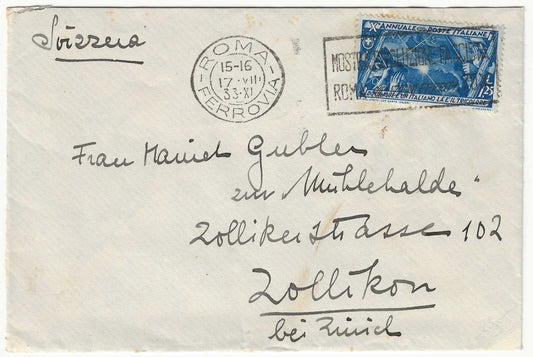 Svizzera
ROMA
15-16
17·VII
33·XI
FERROVIA
MOSTRA RIVOLUZIONE FASCISTA
ROMA
X ANNUALE
POSTE ITALIANE
1,25
Frau Gubler
zur „Mühlehalde“
Zollikerstrasse 102
Zollikon
bei Zürich